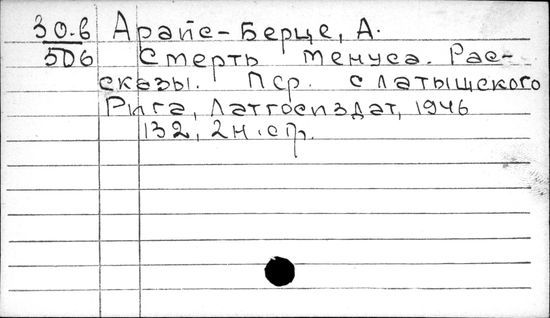 30.в Арайс-Берце, А.
506 Смерть Тенуса. Рас-
сказы. Пер. с латышского
Рига, Латгосиздат, 1946
132, 2 н. стр.